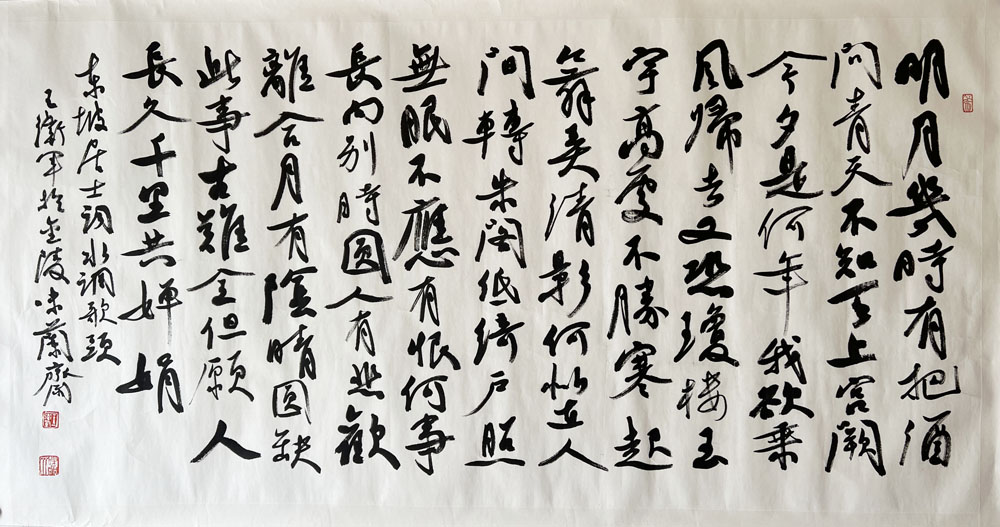 明月幾時有把酒
問青天不知天上宮闕
今夕是何年我欲乘
風歸去又恐瓊樓玉
宇高處不勝寒起
舞弄清影何似在人
間轉朱閣低綺戶照
無眠不應有恨何事
長向別時圓人有悲歡
離合月有陰晴圓缺
此事古難全但願人
長久千里共嬋娟
東坡居士詞水調歌頭
王衛軍於金陵味蘭齋